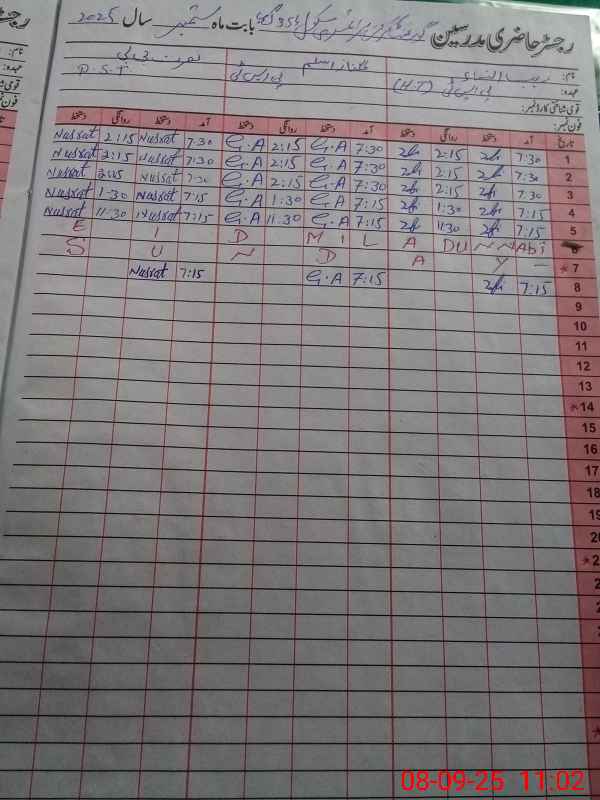 رجسٹر حاضری مدرسین گورنمنٹ گرلز پرائمری سکول 354 بابت ماہ ستمبر سال 2025
نام: زیب النساء گلناز اسلم نصرت بی بی
عہدہ: پی ایس ٹی (H.T) پی ایس ٹی P.S.T
قومی شناختی کارڈ نمبر:
فون نمبر:
تاریخ آمد دستخط روانگی دستخط آمد دستخط روانگی دستخط آمد دستخط روانگی دستخط
Nusrat 2:15 Nusrat 7:30 G.A 2:15 G.A 7:30 2:15 7:30 1
Nusrat 2:15 Nusrat 7:30 G.A 2:15 G.A 7:30 2:15 7:30 2
Nusrat 2:15 Nusrat 7:30 G.A 2:15 G.A 7:30 2:15 7:30 3
Nusrat 1:30 Nusrat 7:15 G.A 1:30 G.A 7:15 1:30 7:15 4
Nusrat 11:30 Nusrat 7:15 G.A 11:30 G.A 7:15 11:30 7:15 5
E I D M I L A DU N NAbi 6
S U N D A Y - *7
Nusrat 7:15 G.A 7:15 7:15 8
9
10
11
12
13
*14
15
16
17
18
19
20
*2
2
2
08-09-25 11:02